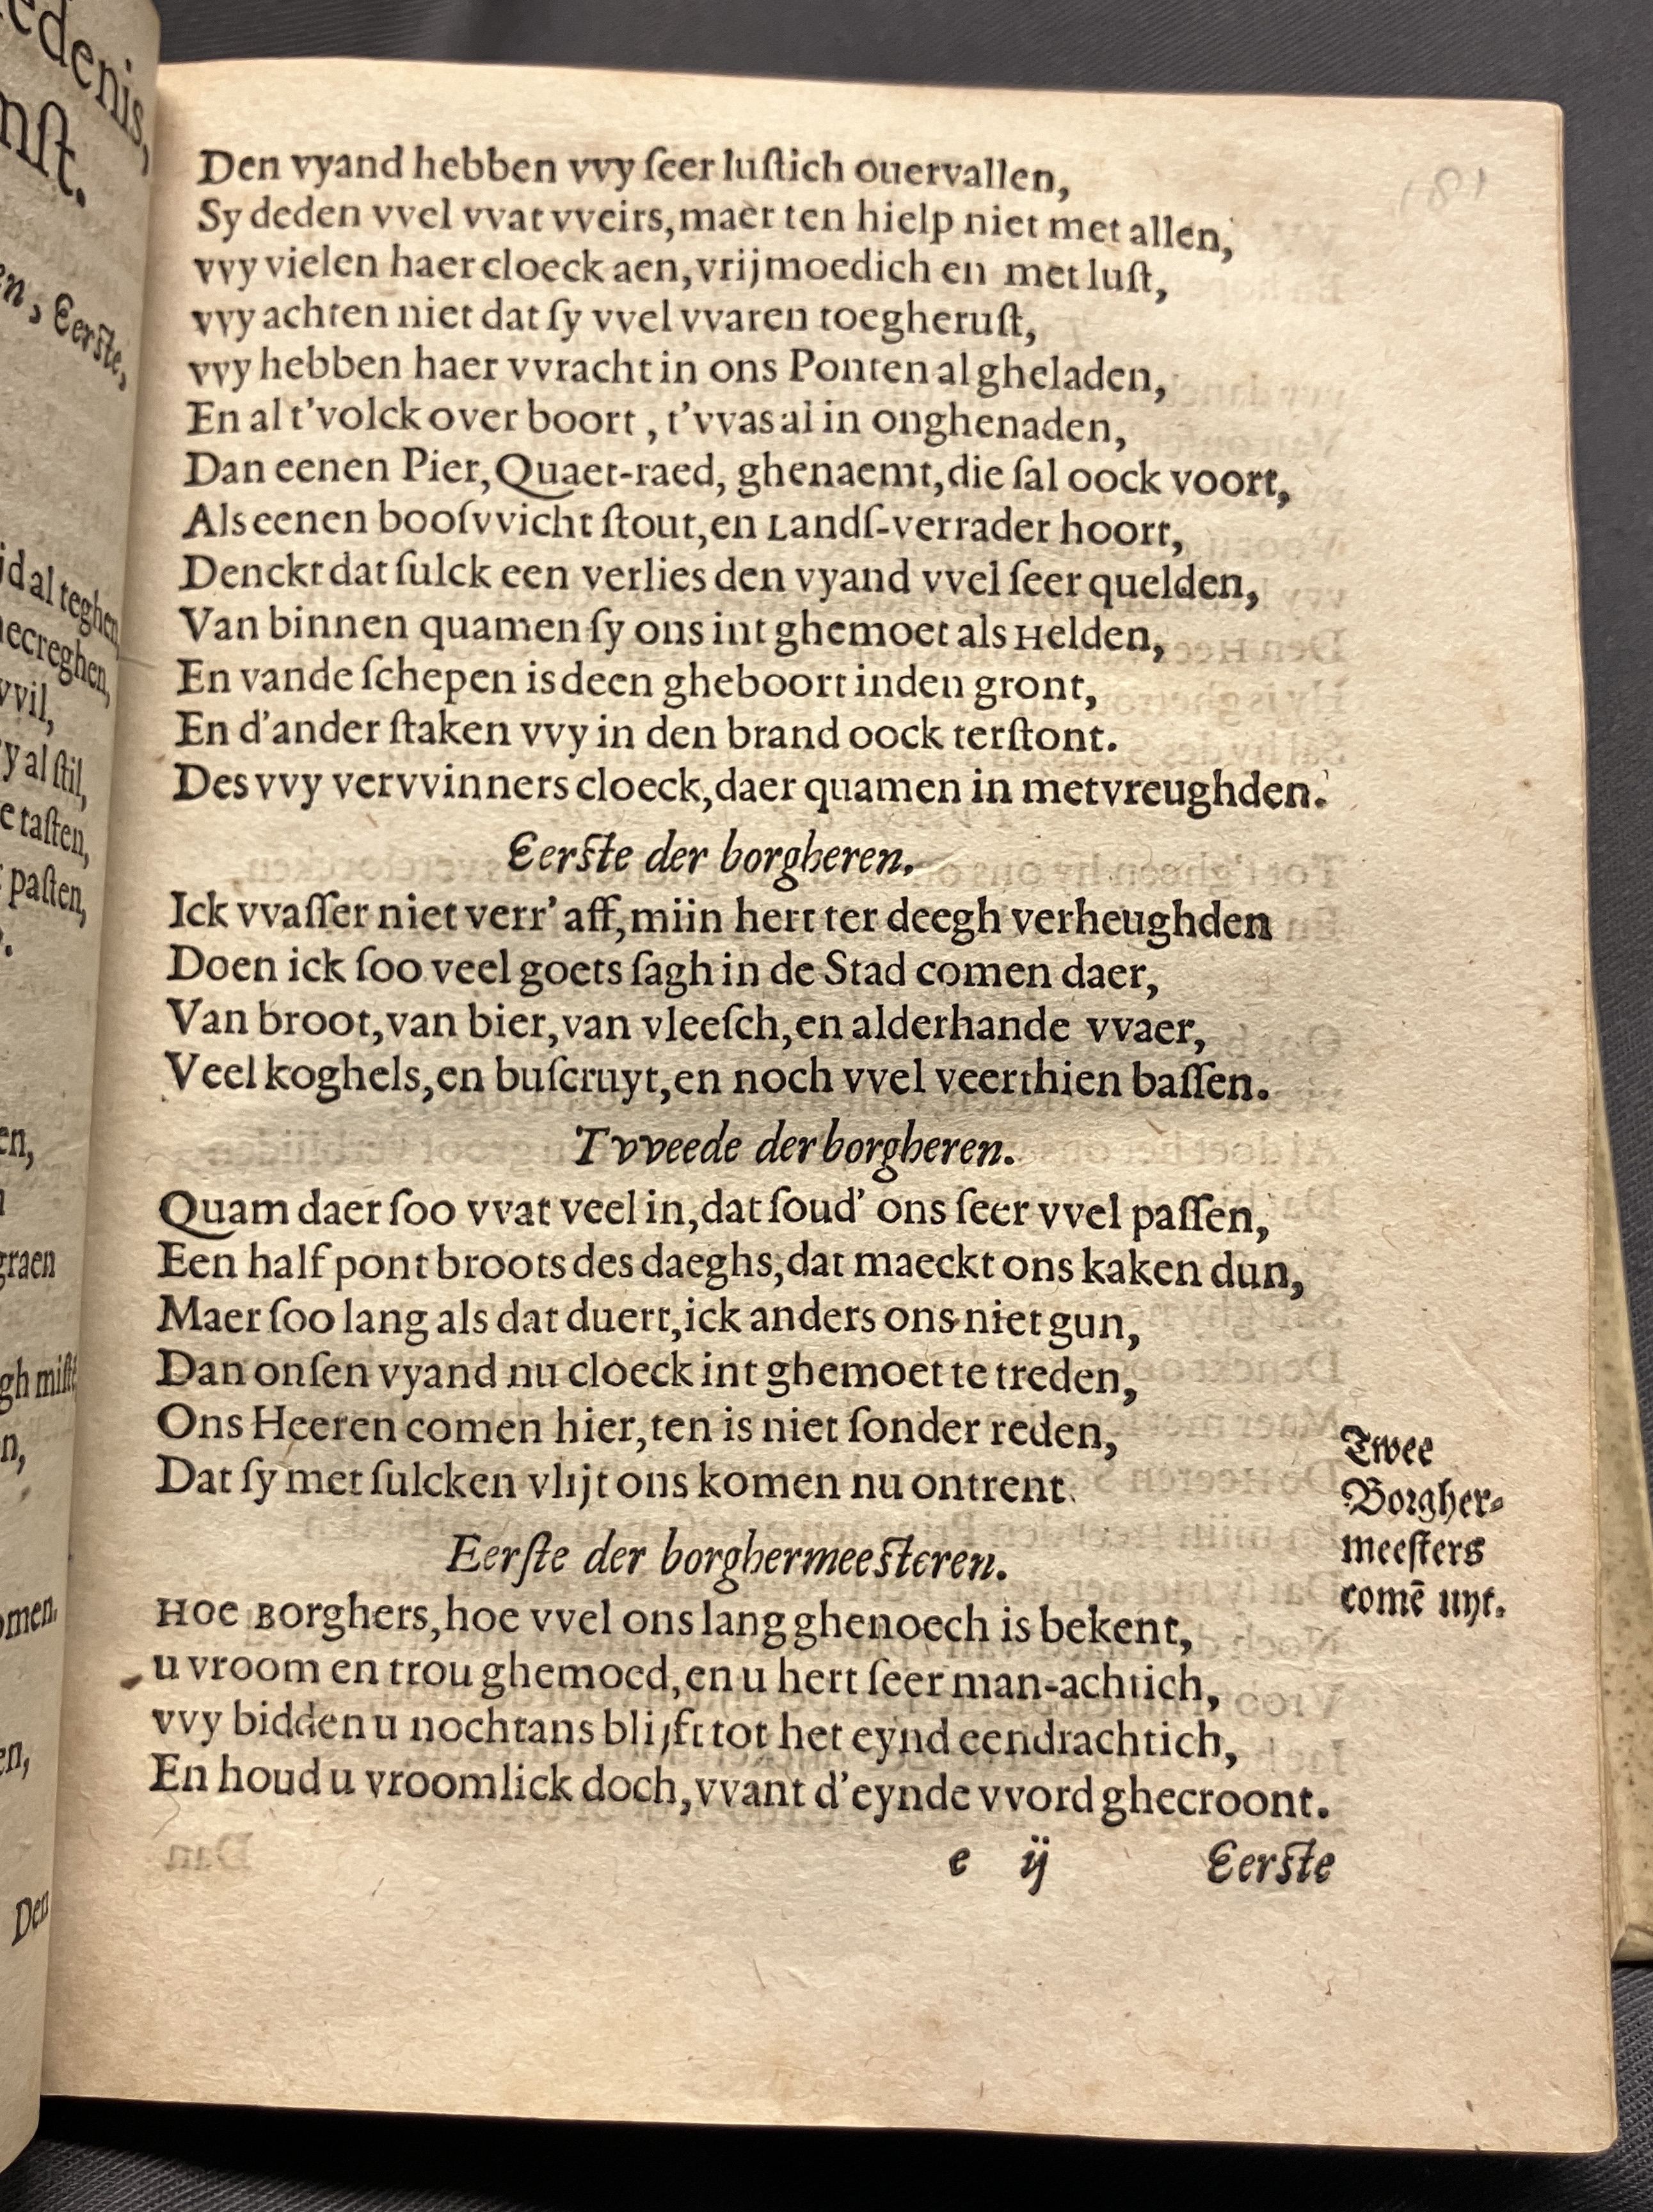 Den vyand hebben vvy ſeer luſtich ouervallen,
Sy deden vvel vvat vveirs, maer ten hielp niet met allen,
vvy vielen haer cloeck aen, vrijmoedich en met luſt,
vvy achten niet dat ſy vvel vvaren toegheruſt,
vvy hebben haer vvracht in ons Ponten al gheladen,
En al t'volck over boort, t'vvas al in onghenaden,
Dan eenen Pier, Quaet-raed, ghenaemt, die ſal oock voort,
Als eenen booſvvicht ſtout, en Landſ-verrader hoort,
Denckt dat ſulck een verlies den vyand vvel ſeer quelden,
Van binnen quamen ſy ons int ghemoet als Helden,
En vande ſchepen is deen gheboort inden gront,
En d'ander ſtaken vvy in den brand oock terſtont.
Des vvy vervvinners cloeck, daer quamen in met vreughden.
Eerſte der borgheren.
Ick vvaſſer niet verr' aff, miin hert ter deegh verheughden
Doen ick ſoo veel goets ſagh in de Stad comen daer,
Van broot, van bier, van vleeſch, en alderhande vvaer,
Veel koghels, en buſcruyt, en noch vvel veerthien baſſen.
Tvveede der borgheren.
Quam daer ſoo vvat veel in, dat ſoud' ons ſeer vvel paſſen,
Een half pont broots des daeghs, dat maeckt ons kaken dun,
Maer ſoo lang als dat duert, ick anders ons niet gun,
Dan onſen vyand nu cloeck int ghemoet te treden,
Ons Heeren comen hier, ten is niet ſonder reden,
Dat ſy met ſulcken vlijt ons komen nu ontrent.
Twee
Borgher-
meeſters
comē uyt.
Eerſte der borghermeeſteren.
Hoe Borghers, hoe vvel ons lang ghenoech is bekent,
u vroom en trou ghemoed, en u hert ſeer man-achtich,
vvy bidden u nochtans blijft tot het eynd eendrachtich,
En houd u vroomlick doch, vvant d'eynde vvord ghecroont.
e ij Eerſte